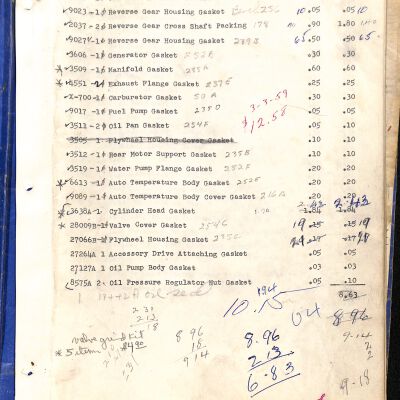 9023 -1 Reverse Gear Housing Gasket 10 .05 .05 10
2037 -2 Reverse Gear Cross Shaft Packing 178 .90 1.80
9027 -1 Reverse Gear Housing Gasket 65 .50 .50 65
3606 -1 Generator Gasket .30 .30
*3509 -1 Manifold Gasket 235A .60 .60
*4551 -1 Exhaust Flange Gasket 237E .25 .25
X-700 -1 Carburator Gasket 50A .30 .30
9017 -1 Fuel Pump Gasket 235D 3-3-59 .05 .05
3511 -2 Oil Pan Gasket 254F $12.58 .05 .10
3505 1 Flywheel Housing Cover Gasket .10 .10
3512 -1 Rear Motor Support Gasket 235B .10 .10
3519 -1 Water Pump Flange Gasket 252F .20 .20
*6613 -1 Auto Temperature Body Gasket 252E .20 .20
9089 -1 Auto Temperature Body Cover Gasket 216A .20 .20
*2638A-1 Cylinder Head Gasket 1.04 1.04
*28009B-1 Valve Cover Gasket 254C 19 .25 .25 19
27066B- Flywheel Housing Gasket 235C .17
27264A 1 Accessory Drive Attaching Gasket .05 .05
27127A 1 Oil Pump Body Gasket .03 .03
8575A 2 Oil Pressure Regulator Nut Gasket .05 .10
8.63
10.15 04 8.96
valve grind kit 8 96 8.96 9.14
* 5 items $4.90 18 2 13
9 14 6.83
9-18